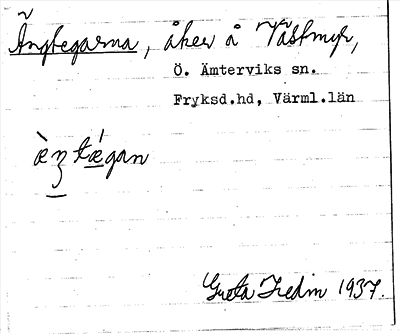 Ängtegarna, åker å Västmyr,
Ö. Ämterviks sn.
Fryksd.hd, Värml.län
Greta Hedin 1937.